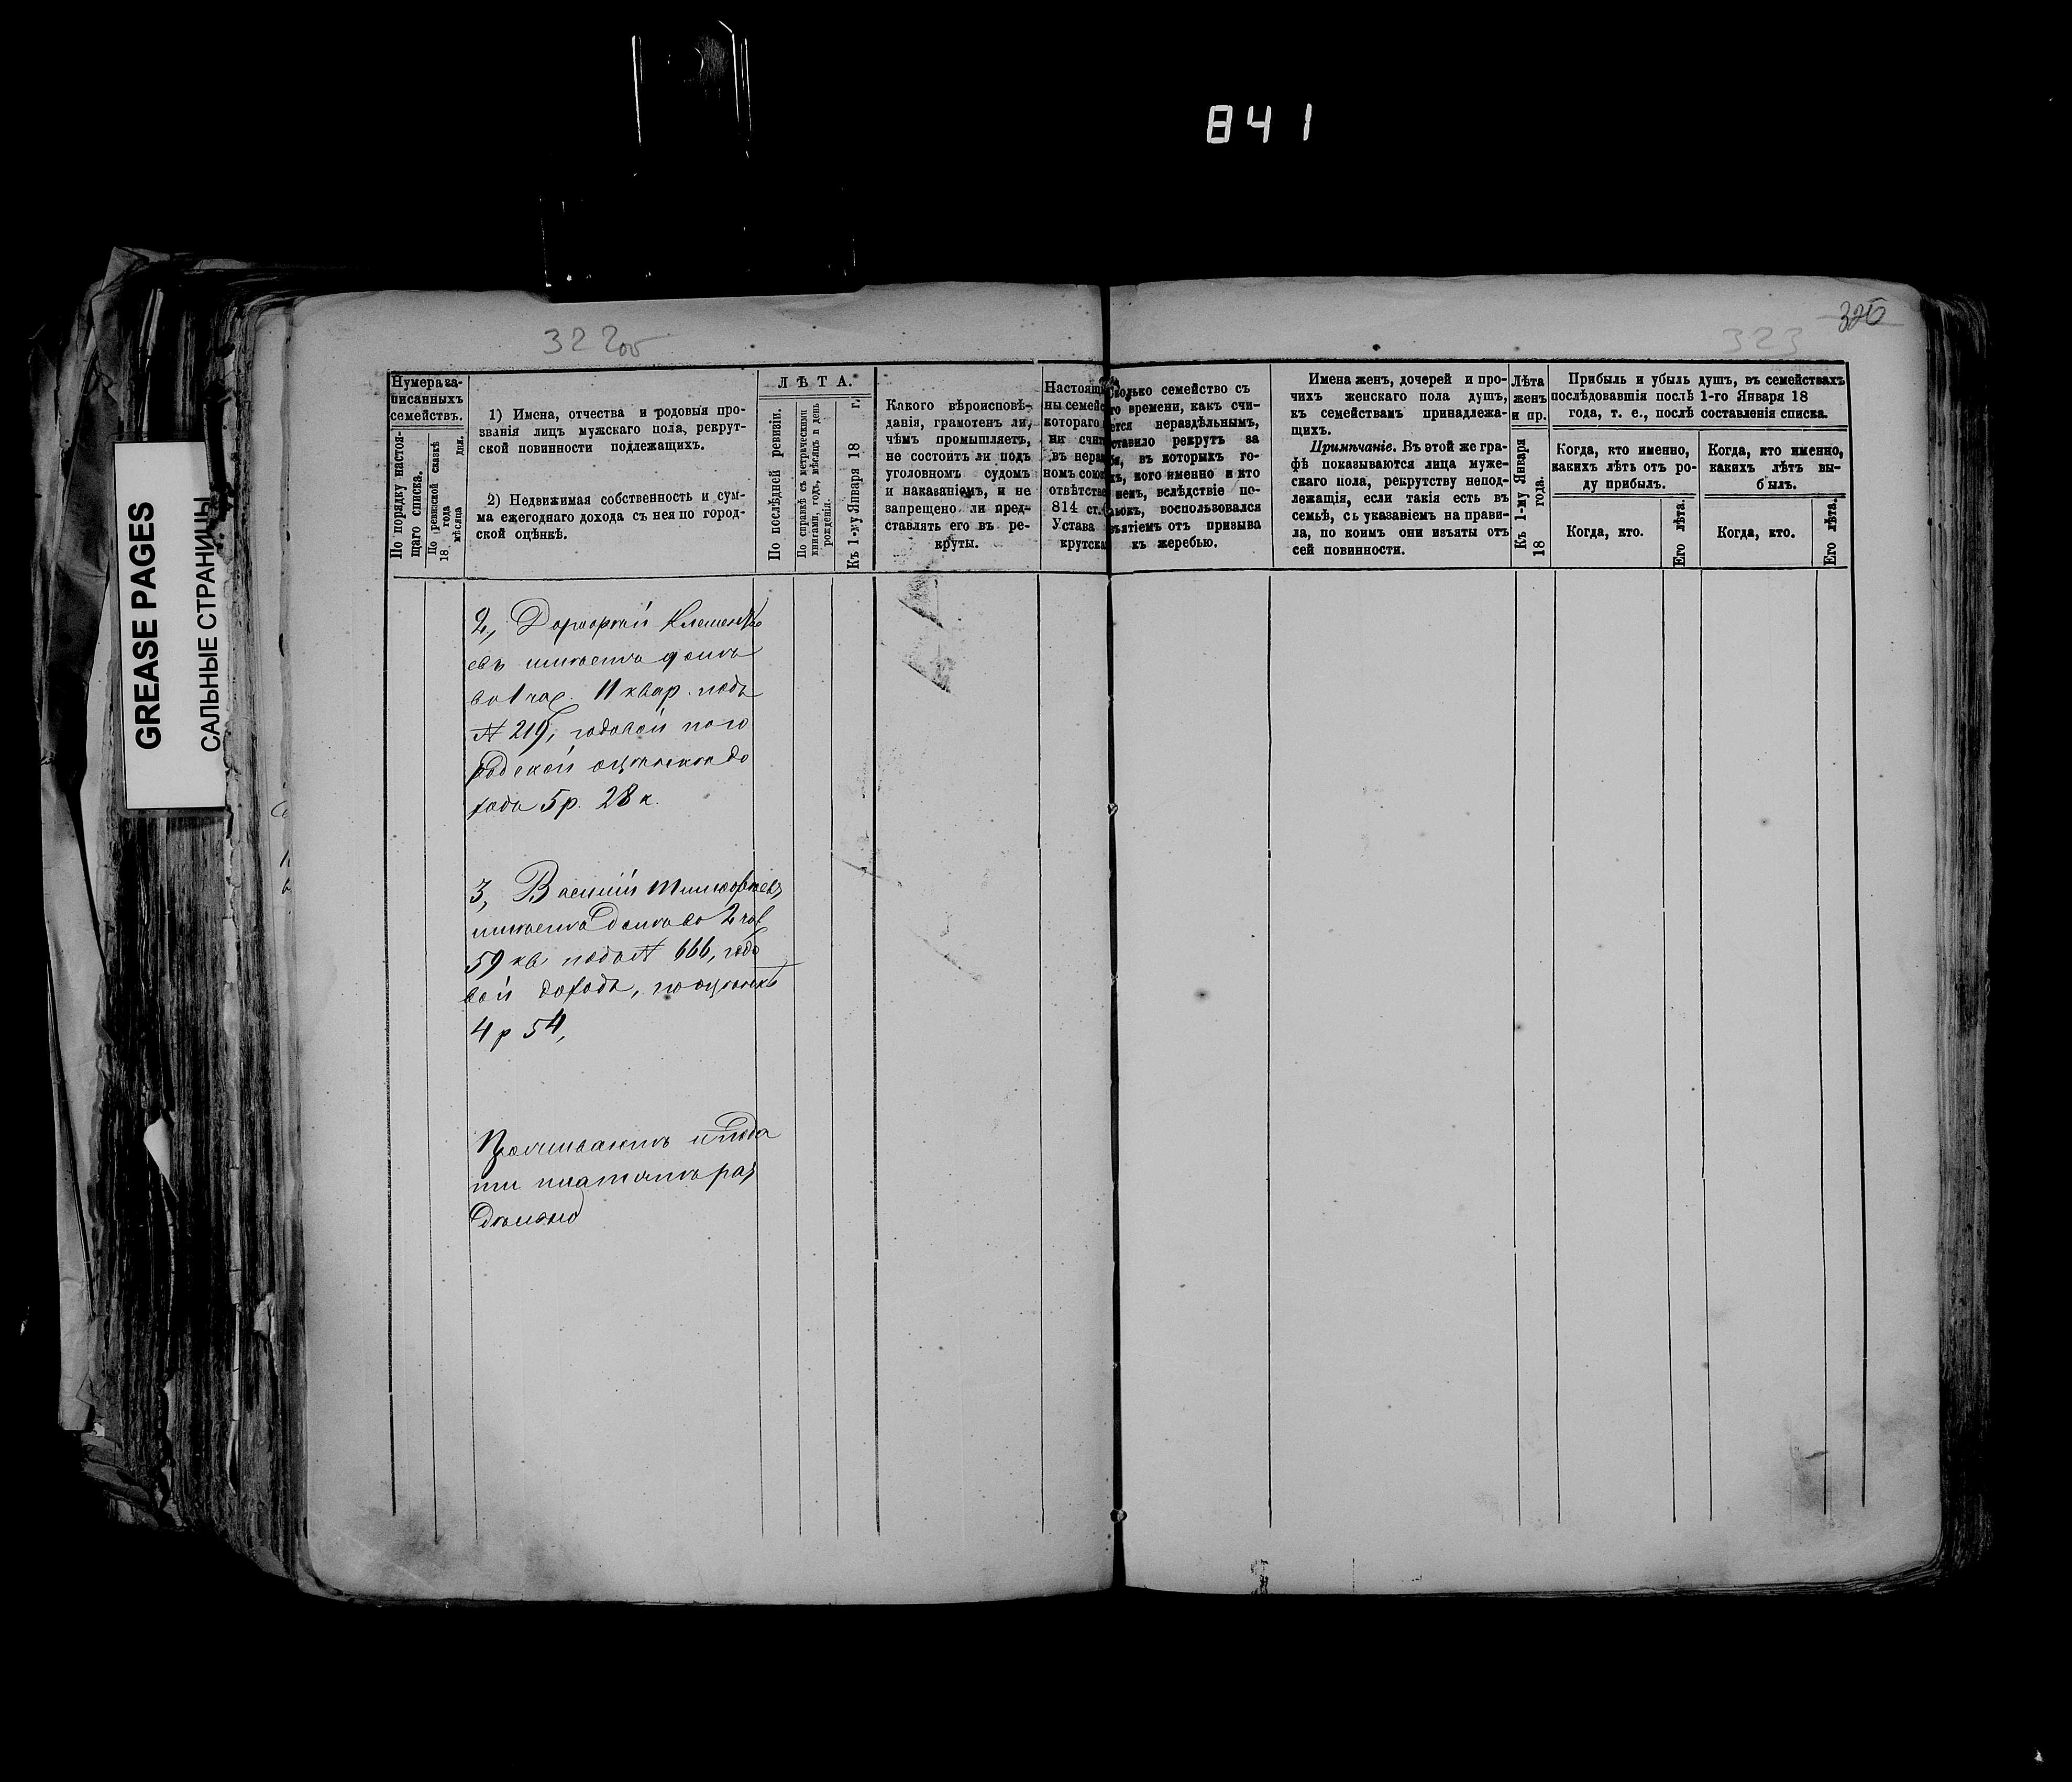 841
GREASE PAGES
САЛЬНЫЕ СТРАНИЦЫ
322об
323
326
Нумера за-
писанныхъ
семействъ.
По порядку настоя-
щаго списка.
По ревизской сказкѣ
18 года
мѣсяца дня.
1) Имена, отчества и родовыя про-
званія лицъ мужскаго пола, рекрут-
ской повинности подлежащихъ.
2) Недвижимая собственность и сум-
ма ежегоднаго дохода съ нея по город-
ской оцѣнкѣ.
ЛѢТА.
По послѣдней ревизіи.
По справкѣ съ метрическими
книгами, годъ, мѣсяцъ и день
рожденія.
Къ 1-му Января 18 г.
Какого вѣроисповѣ-
данія, грамотенъ ли,
чѣмъ промышляетъ,
не состоитъ ли подъ
уголовномъ судомъ
и наказаніемъ, и не
запрещено ли пред-
ставлять его въ ре-
круты.
Настоящ
ны семейс
котораго
ни счит
въ нераз
номъ союз
отвѣтстве
814 ст.
Устава
крутска
Сколько семейство съ
го времени, какъ счи-
ется нераздѣльнымъ,
ставило рекрутъ за
бя, въ которыхъ го-
хъ, кого именно и кто
немъ, вслѣдствіе по-
ьокъ, воспользовался
зъятіемъ отъ призыва
къ жеребью.
Имена женъ, дочерей и про-
чихъ женскаго пола душъ,
къ семействамъ принадлежа-
щихъ.
Примѣчаніе. Въ этой же гра-
фѣ показываются лица муже-
скаго пола, рекрутству непод-
лежащія, если такія есть въ
семьѣ, съ указаніемъ на прави-
ла, по коимъ они изъяты отъ
сей повинности.
Лѣта
женъ
и пр.
Къ 1-му Января
18 года.
Прибыль и убыль душъ, въ семействахъ
послѣдовавшія послѣ 1-го Января 18
года, т. е., послѣ составленія списка.
Когда, кто именно,
какихъ лѣтъ отъ ро-
ду прибылъ.
Когда, кто.
Его лѣта.
Когда, кто именно,
какихъ лѣтъ вы-
былъ.
Когда, кто.
Его лѣта.
2,
евъ имѣетъ домъ
во 1 час. 11 квар. подъ
№ 219, годовой по го
родской оцѣнкѣ до
хода 5 р. 28 к.
3, Василій
имѣетъ домъ во 2 час
59 кв. подъ № 666, годо
вой доходъ, по оцѣнкѣ
4 р 54,
Проживаютъ и пода
ти платятъ раз
дѣльно